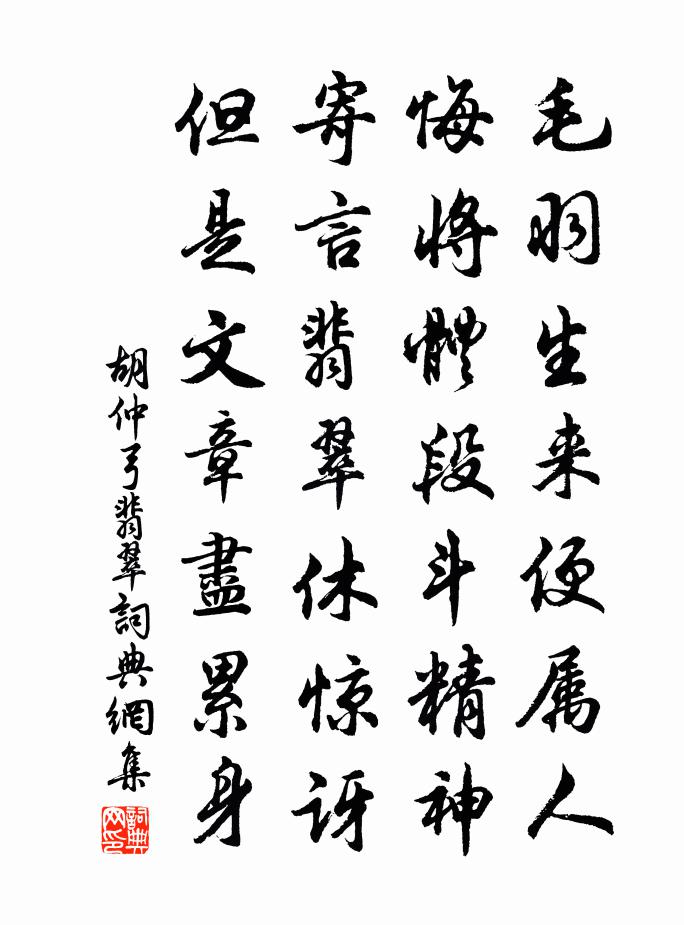 毛羽生来便属人
悔將體段斗精神
寄言翡翠休惊讶
但是文章盡累身
胡仲弓翡翠詞典網集
詞典网印